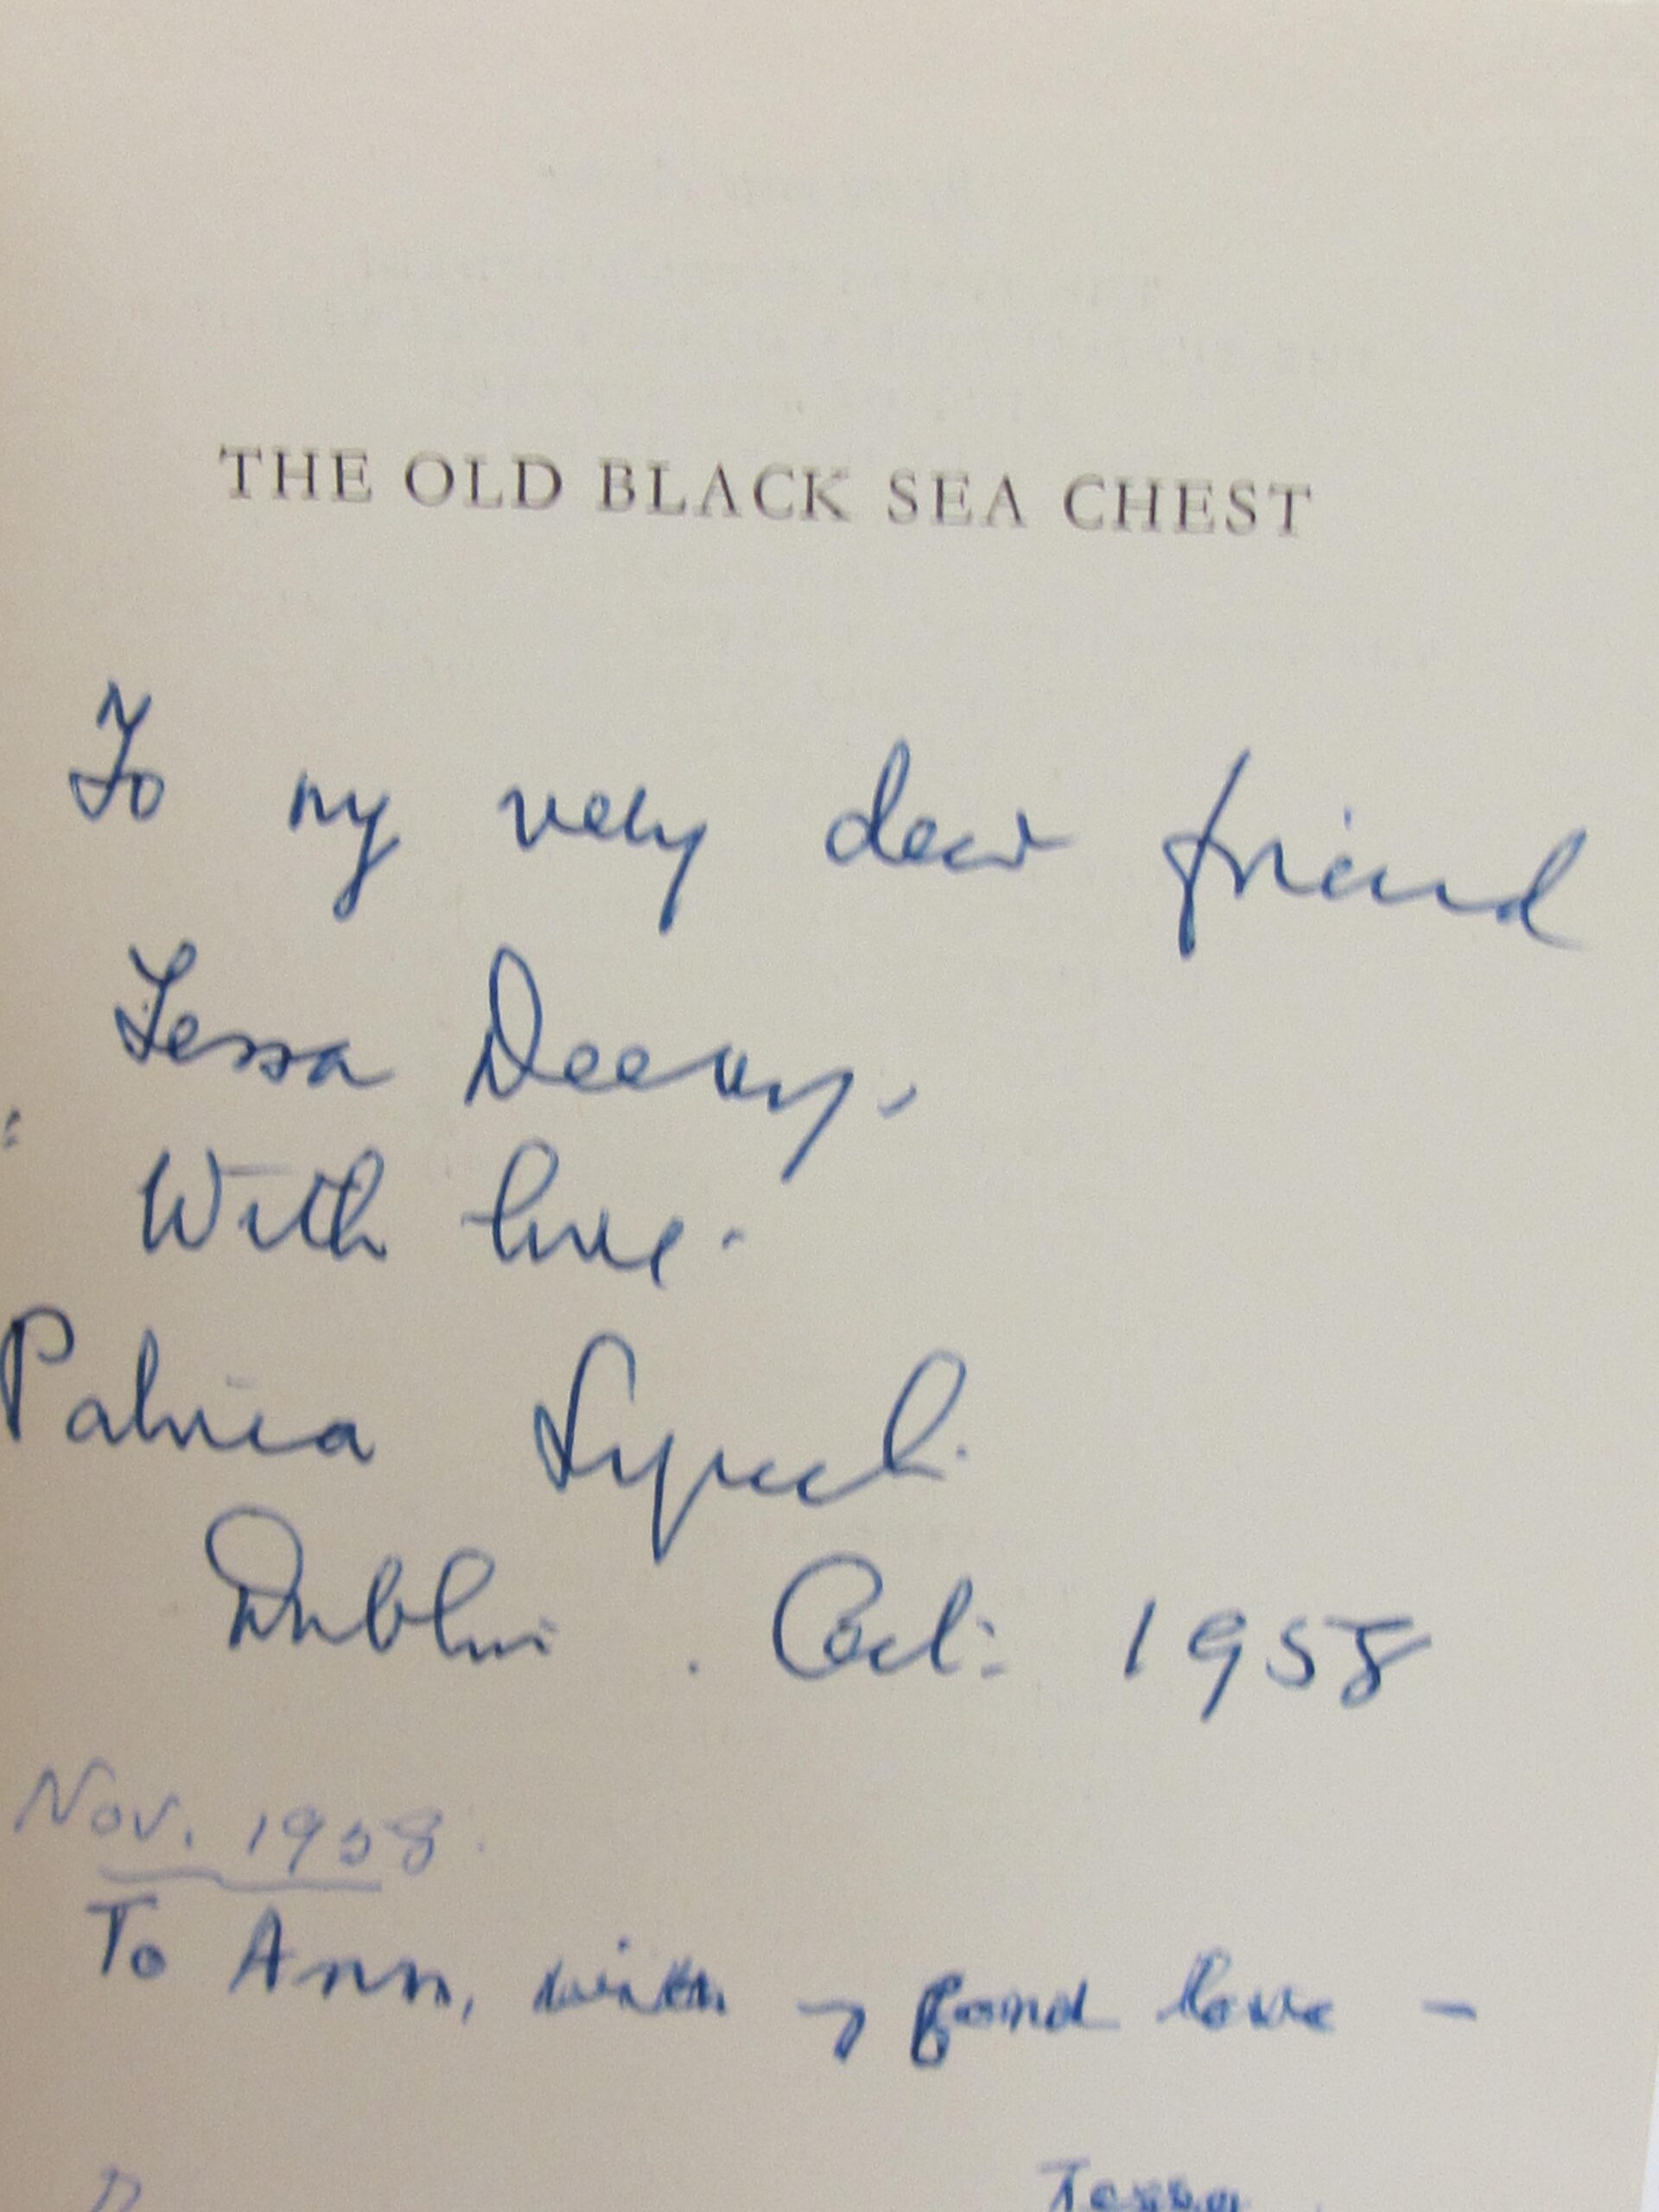 THE OLD BLACK SEA CHEST
To my very dear friend
Tessa Deevy.
With love.
Patricia Lynch.
Dublin. Oct: 1958
Nov. 1958.
To Ann, with my fond love —
Tessa